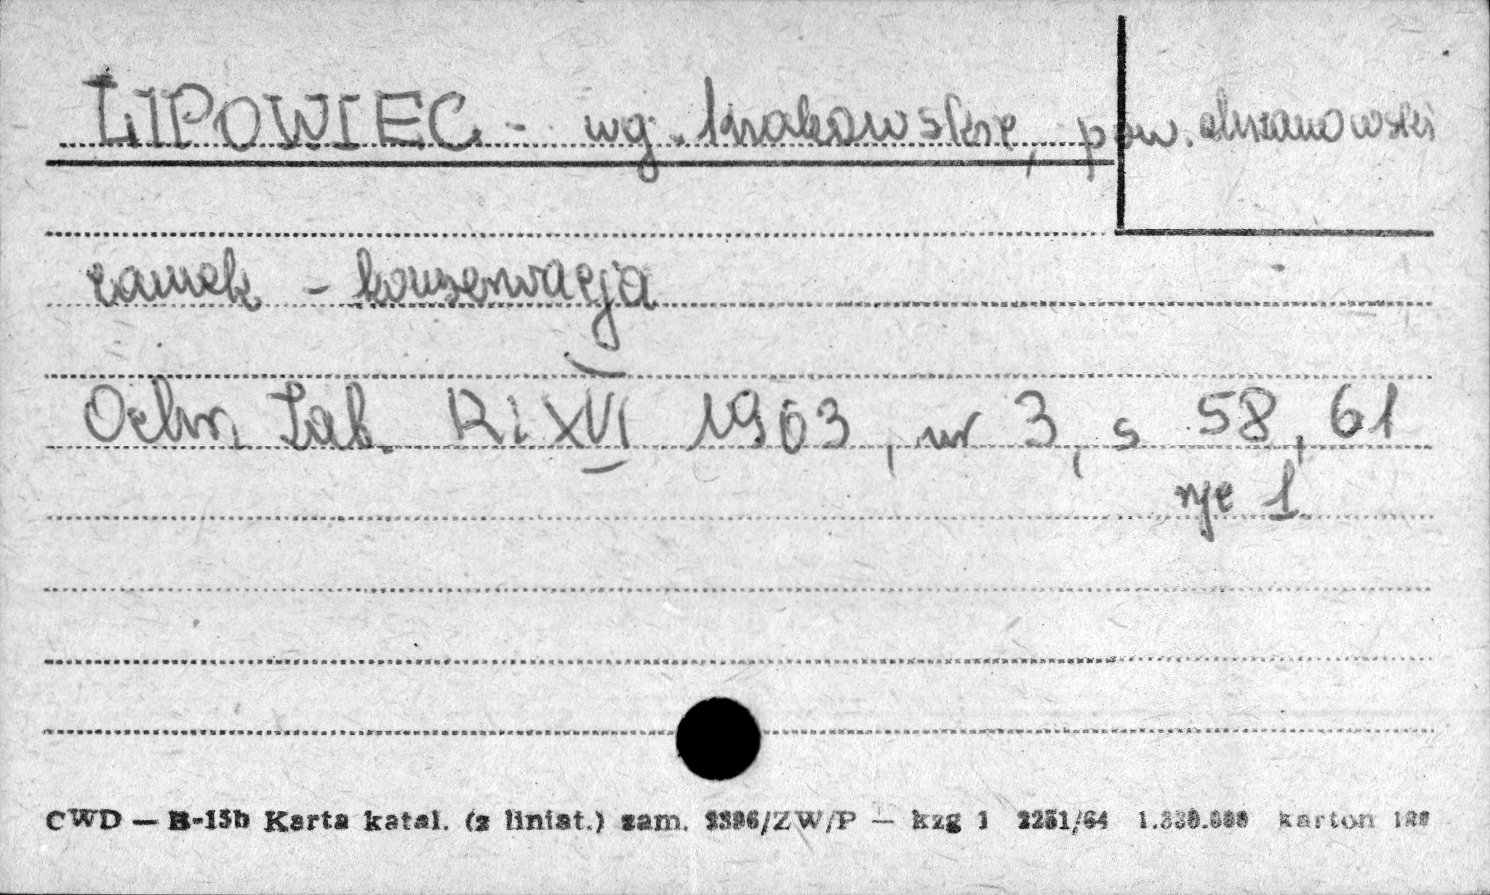 LIPOWIEC - wg. krakowskie, pow. chrzanowski
zamek - konserwacja
Ochr. Zab. R. XVI 1963, nr 3, s 58, 61
ryc 1
CWD — B-15b Karta katal. (z liniat.) zam. 2396/ZW/P — kzg 1 2251/64 karton